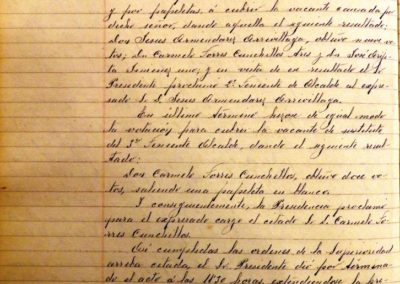 y por papeletas, á cubrir la vacante causada por
dicho señor, dando aquella el siguiente resultado:
Don Jesus Armendariz Arrevillaga, obtuvo nueve vo-
tos, Dn Carmelo Torres Cunchillos Aris y Dn José
Jimenez uno, y en vista de su resultado el Sr.
Presidente proclamo 2º Teniente de Alcalde al expre-
sado Sr. D. Jesus Armendariz Arrevillaga.
En último término hizose de igual modo
la votacion para cubrir la vacante de sustituto
del 3er Teniente Alcalde, dando el siguiente resul-
tado:
Don Carmelo Torres Cunchillos, obtuvo doce vo-
tos, saliendo una papeleta en blanco.
I consiguientemente, la Presidencia proclamo
para el expresado cargo al citado Sr. D. Carmelo To-
rres Cunchillos.
Asi cumplidas las ordenes de la Superioridad
arriba citada, el Sr. Presidente dió por termina-
do el acto á las 18'30 horas, extendiendose la pre-